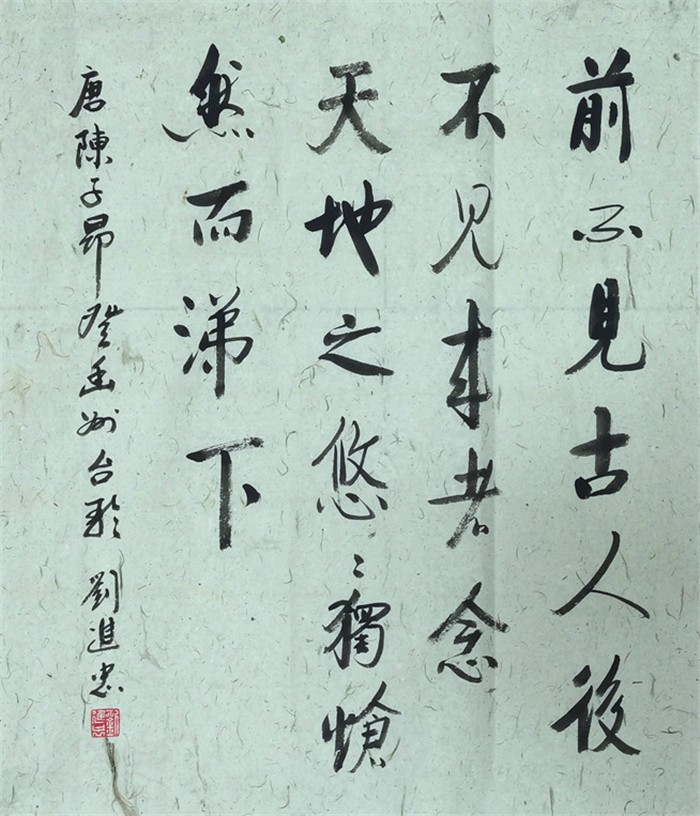 前不見古人後
不见来者念
天地之悠々獨愴
然而涕下
唐陳子昂登幽州台歌 劉進忠